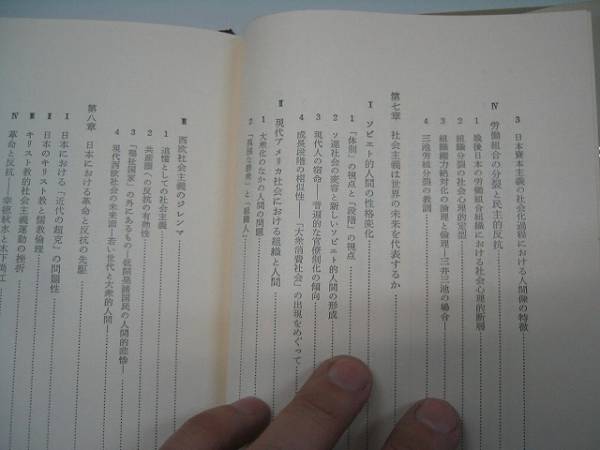 3 日本資本主義の社会化過程における人間像の特徴
Ⅳ 労働組合の分裂と民主的反抗
1 戦後日本の労働組合組織における社会心理的断層
2 組織分裂の社会心理的定型
3 組織権力絶対化の論理と倫理―三井三池の場合―
4 三池労組分裂の教訓
第七章 社会主義は世界の未来を代表するか
Ⅰ ソビエト的人間の性格変化
1 「体制」の視点と「段階」の視点
2 ソ連社会の変容と新しいソビエト的人間の形成
3 現代人の宿命―普遍的な官僚制化の傾向
4 成長段階の相似性―「大衆消費社会」の出現をめぐって
Ⅱ 現代アメリカ社会における組織と人間
1 大衆化のなかの人間の問題
2 「孤独な群衆」と「組織人」
Ⅲ 西欧社会主義のジレンマ
1 追憶としての社会主義
2 共産圏への反抗の有効性
3 「福祉国家」の外にあるもの―低開発諸国民の人間的悲惨―
4 現代西欧社会の未来図―若い世代と大衆的人間―
第八章 日本における革命と反抗の先駆
Ⅰ 日本における「近代の超克」の問題性
Ⅱ 日本のキリスト教と儒教倫理
Ⅲ キリスト教的社会主義運動の挫折
Ⅳ 革命と反抗―幸徳秋水と木下尚江